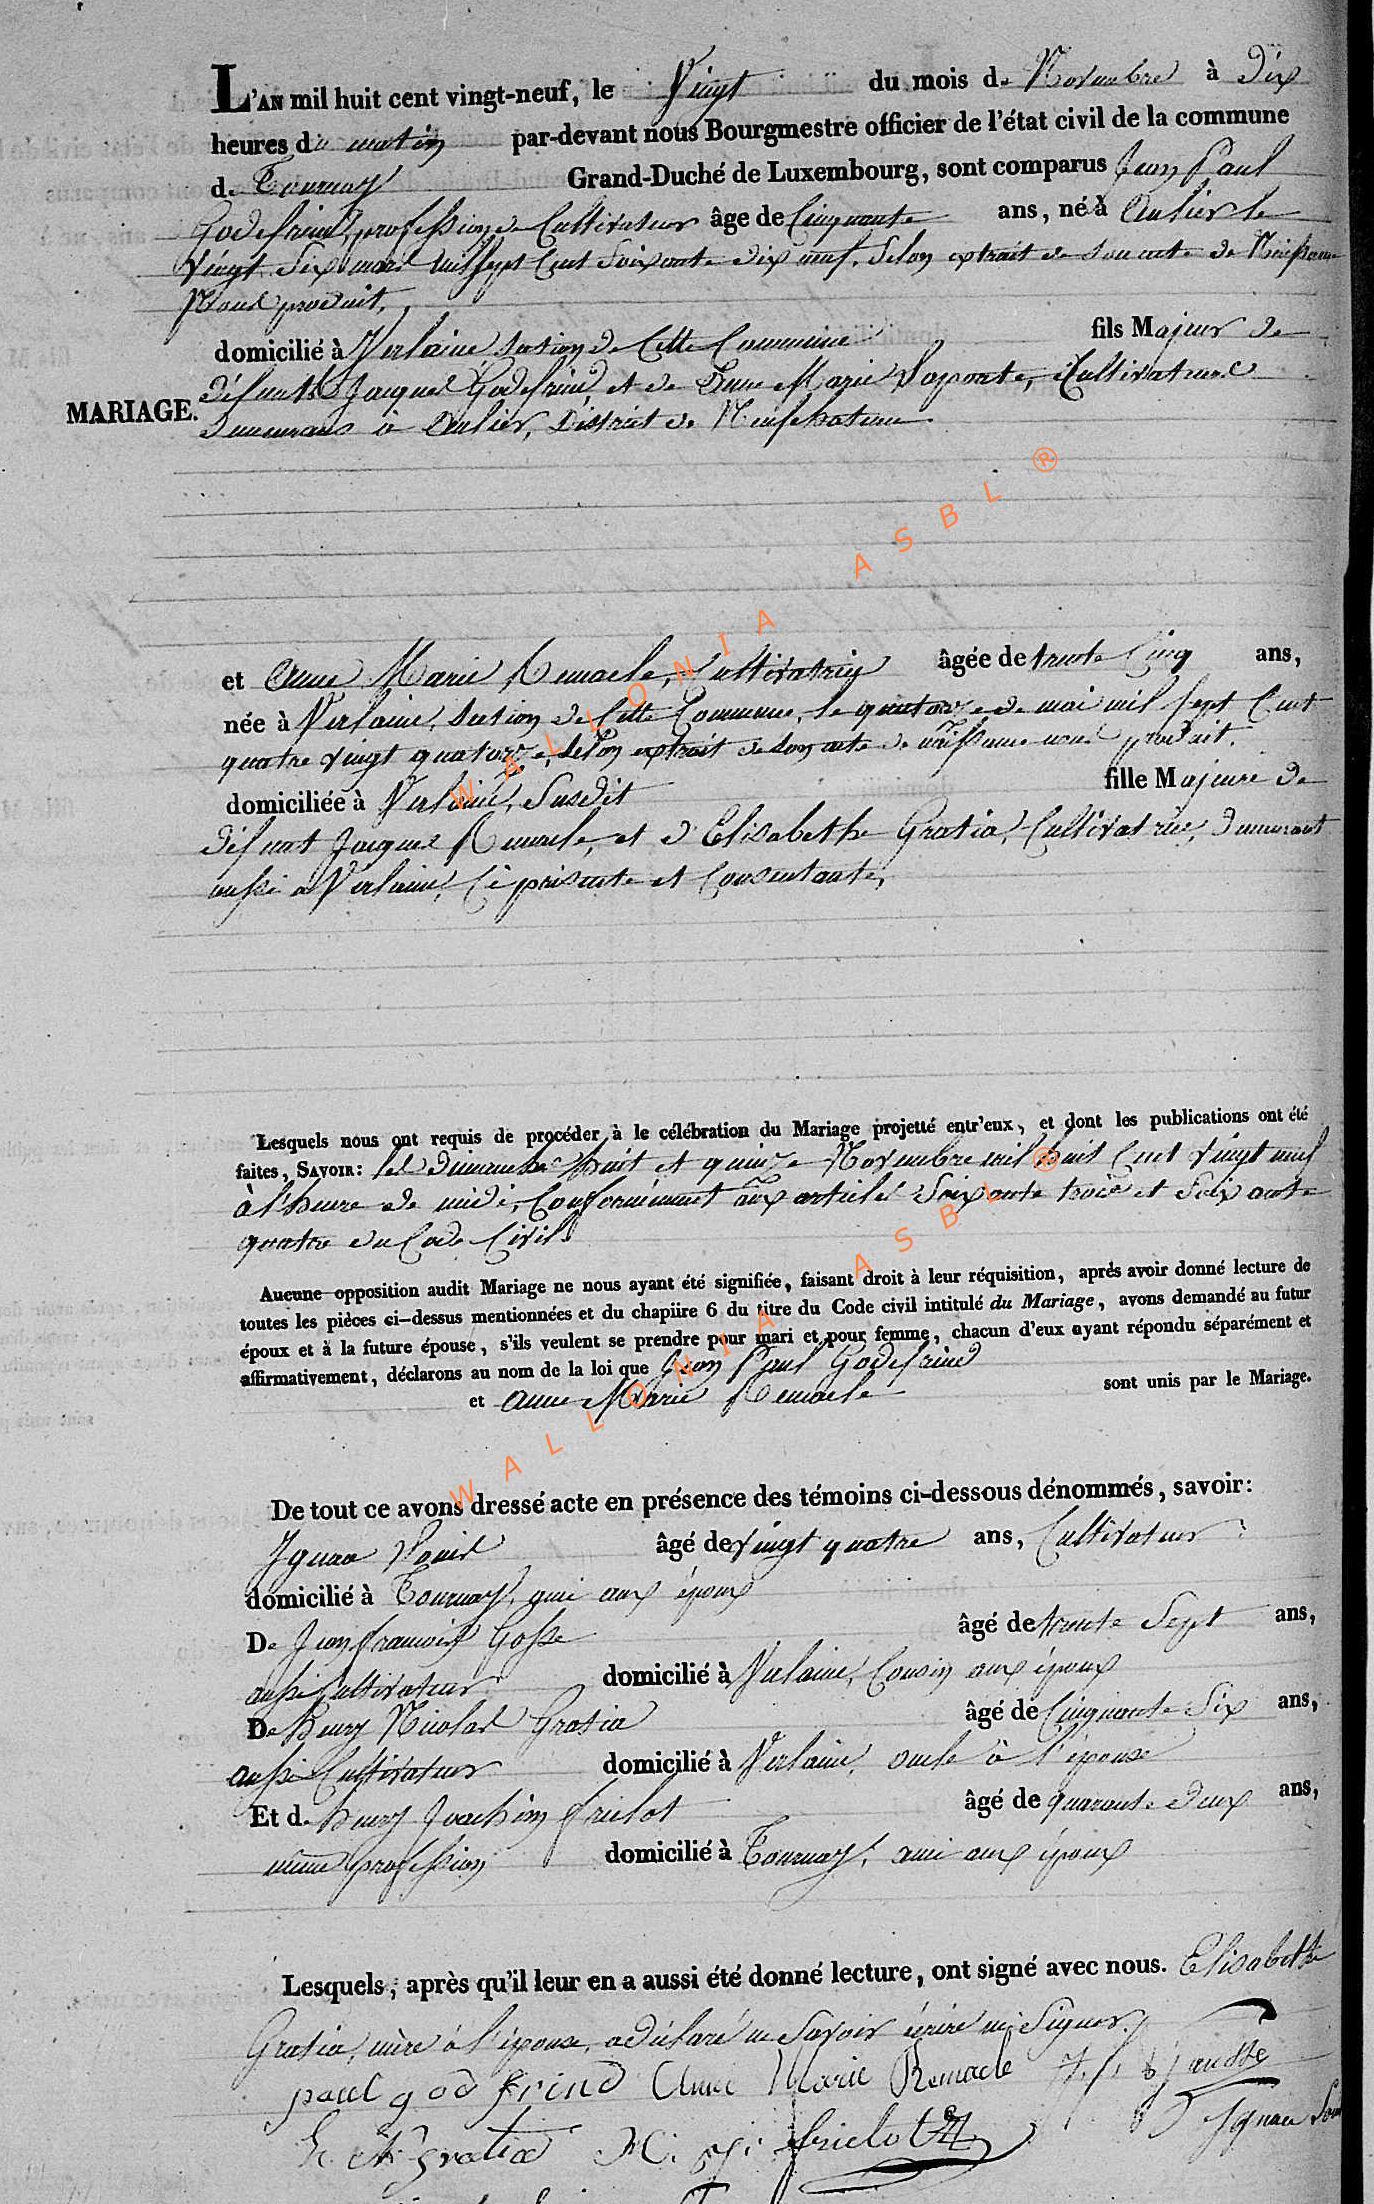 L'AN mil huit cent vingt-neuf, le Vingt du mois de Novembre à Dix
heures du matin par-devant nous Bourgmestre officier de l'état civil de la commune
de Tournay Grand-Duché de Luxembourg, sont comparus Jean Paul
Godefrind, profession de Cultivateur âge de Cinquante ans, né à Anlier le
Vingt Six mars mil sept Cent Soixante dix neuf, Selon extrait de son acte de Naissance
Nous produit,
domicilié à Verlaine section de Cette Commune fils Majeur de
MARIAGE.
défunts Jacques Godefrind, et de Anne Marie Laporte, Cultivateurs
demeurans à Anlier, District de Neufchateau
et Anne Marie Remacle, Cultivatrice âgée de trente Cinq ans,
née à Verlaine, section de Cette Commune, le quatorze de mai mil Sept Cent
quatre vingt quatorze, selon extrait de son acte de naissance nous produit.
domiciliée à Verlaine, Susdit fille Majeure de
Défunt Jacques Remacle, et d'Elisabethe Gratia, Cultivatrice, demeurant
aussi a Verlaine, Ci présente et Consentante,
Lesquels nous ont requis de procéder à le célébration du Mariage projetté entr'eux, et dont les publications ont été
faites, SAVOIR: les dimanches huit et quinze Novembre mil huit Cent Vingt neuf
à l'heure de midi, Conformément aux articles Soixante trois et Soixante
quatre du Code Civil.
Aucune opposition audit Mariage ne nous ayant été signifiée, faisant droit à leur réquisition, après avoir donné lecture de
toutes les pièces ci-dessus mentionnées et du chapiire 6 du titre du Code civil intitulé du Mariage, avons demandé au futur
époux et à la future épouse, s'ils veulent se prendre pour mari et pour femme, chacun d'eux ayant répondu séparément et
affirmativement, déclarons au nom de la loi que Jean Paul Godefrind
et Anne Marie Remacle sont unis par le Mariage.
De tout ce avons dressé acte en présence des témoins ci-dessous dénommés, savoir:
Ignace Louis âgé de vingt quatre ans, Cultivateur
domicilié à Tournay, ami aux époux
De Jean françois Gosse âgé de trente Sept ans,
aussi Cultivateur domicilié à Verlaine, Cousin aux époux
De henry Nicolas Gratia âgé de Cinquante Six ans,
aussi Cultivateur domicilié à Verlaine, oncle à l'épouse
Et de henry Joachim frielot âgé de quarante Deux ans,
même profession domicilié à Tournay, ami aux époux
Lesquels, après qu'il leur en a aussi été donné lecture, ont signé avec nous. Elisabethe
Gratia, mère à l'épouse, a déclaré ne Savoir écrire ni Signer.
paul godfrind Anne Marie Remacle J. f. gausse
h. N gratia H. J. frielot Ignace Louis
WALLONIA ASBL ®
WALLONIA ASBL ®